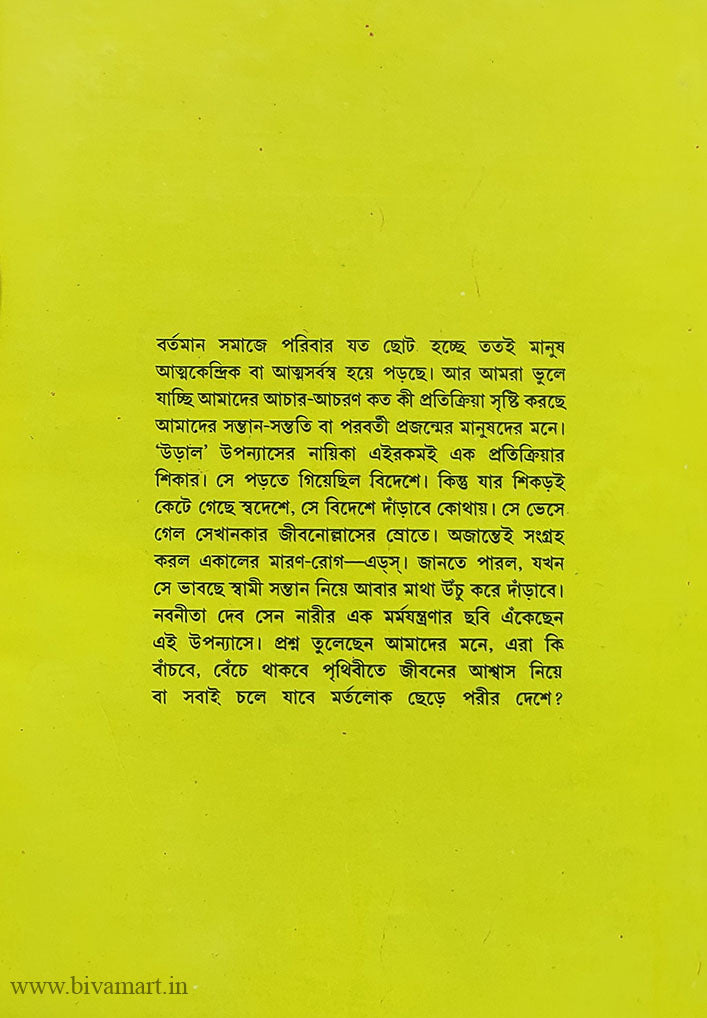 বর্তমান সমাজে পরিবার যত ছোট হচ্ছে ততই মানুষ
আত্মকেন্দ্রিক বা আত্মসর্বস্ব হয়ে পড়ছে। আর আমরা ভুলে
যাচ্ছি আমাদের আচার-আচরণ কত কী প্রতিক্রিয়া সৃষ্টি করছে
আমাদের সন্তান-সন্ততি বা পরবর্তী প্রজন্মের মানুষদের মনে।
‘উড়াল’ উপন্যাসের নায়িকা এইরকমই এক প্রতিক্রিয়ার
শিকার। সে পড়তে গিয়েছিল বিদেশে। কিন্তু যার শিকড়ই
কেটে গেছে স্বদেশে, সে বিদেশে দাঁড়াবে কোথায়। সে ভেসে
গেল সেখানকার জীবনোল্লাসের স্রোতে। অজান্তেই সংগ্রহ
করল একালের মারণ-রোগ—এড্‌স্। জানতে পারল, যখন
সে ভাবছে স্বামী সন্তান নিয়ে আবার মাথা উঁচু করে দাঁড়াবে।
নবনীতা দেব সেন নারীর এক মর্মযন্ত্রণার ছবি এঁকেছেন
এই উপন্যাসে। প্রশ্ন তুলেছেন আমাদের মনে, এরা কি
বাঁচবে, বেঁচে থাকবে পৃথিবীতে জীবনের আশ্বাস নিয়ে
বা সবাই চলে যাবে মর্তলোক ছেড়ে পরীর দেশে?
www.bivamart.in